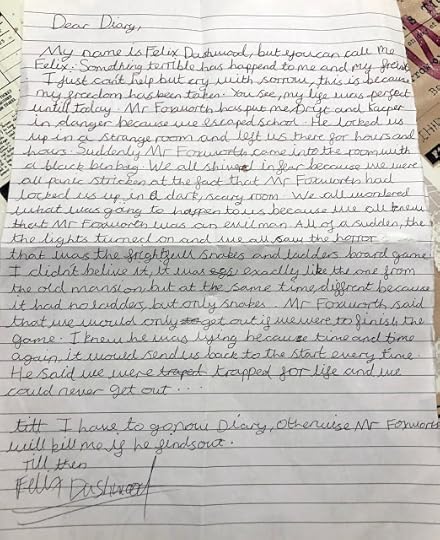 Dear Diary,
My name is Felix Dashwood, but you can call me
Felix. Something terrible has happend to me and my friends.
I just can't help but cry with sorrow, this is because
my freedom has been taken. You see, my life was perfect
untill today. Mr Foxworth has put me, Drift and Kacper
in danger because we escaped school. He locked us
up in a strange room and left us there for hours and
hours. Suddenly Mr Foxworth came into the room with
a black bin bag. We all shivered in fear because we were
all panic stricken at the fact that Mr Foxworth had
locked us up in a dark, scary room. We all wondered
what was going to happen to us because we all knew
that Mr Foxworth was an evil man. All of a sudden, the
the lights turned on and we all saw the horror
that was the frightfull snakes and ladders board game.
I didn't belive it, it was exactly like the one from
the old mansion but at the same time, diffrent because
it had no ladders, but only snakes. Mr Foxworth said
that we would only get out if we were to finish the
game. I knew he was lying because time and time
again, it would send us back to the start every time.
He said we were traped trapped for life and we
could never get out...
till I have to go now Diary, Otherwise Mr Foxworth
will kill me if he finds out.
Till then
Felix Dashwood